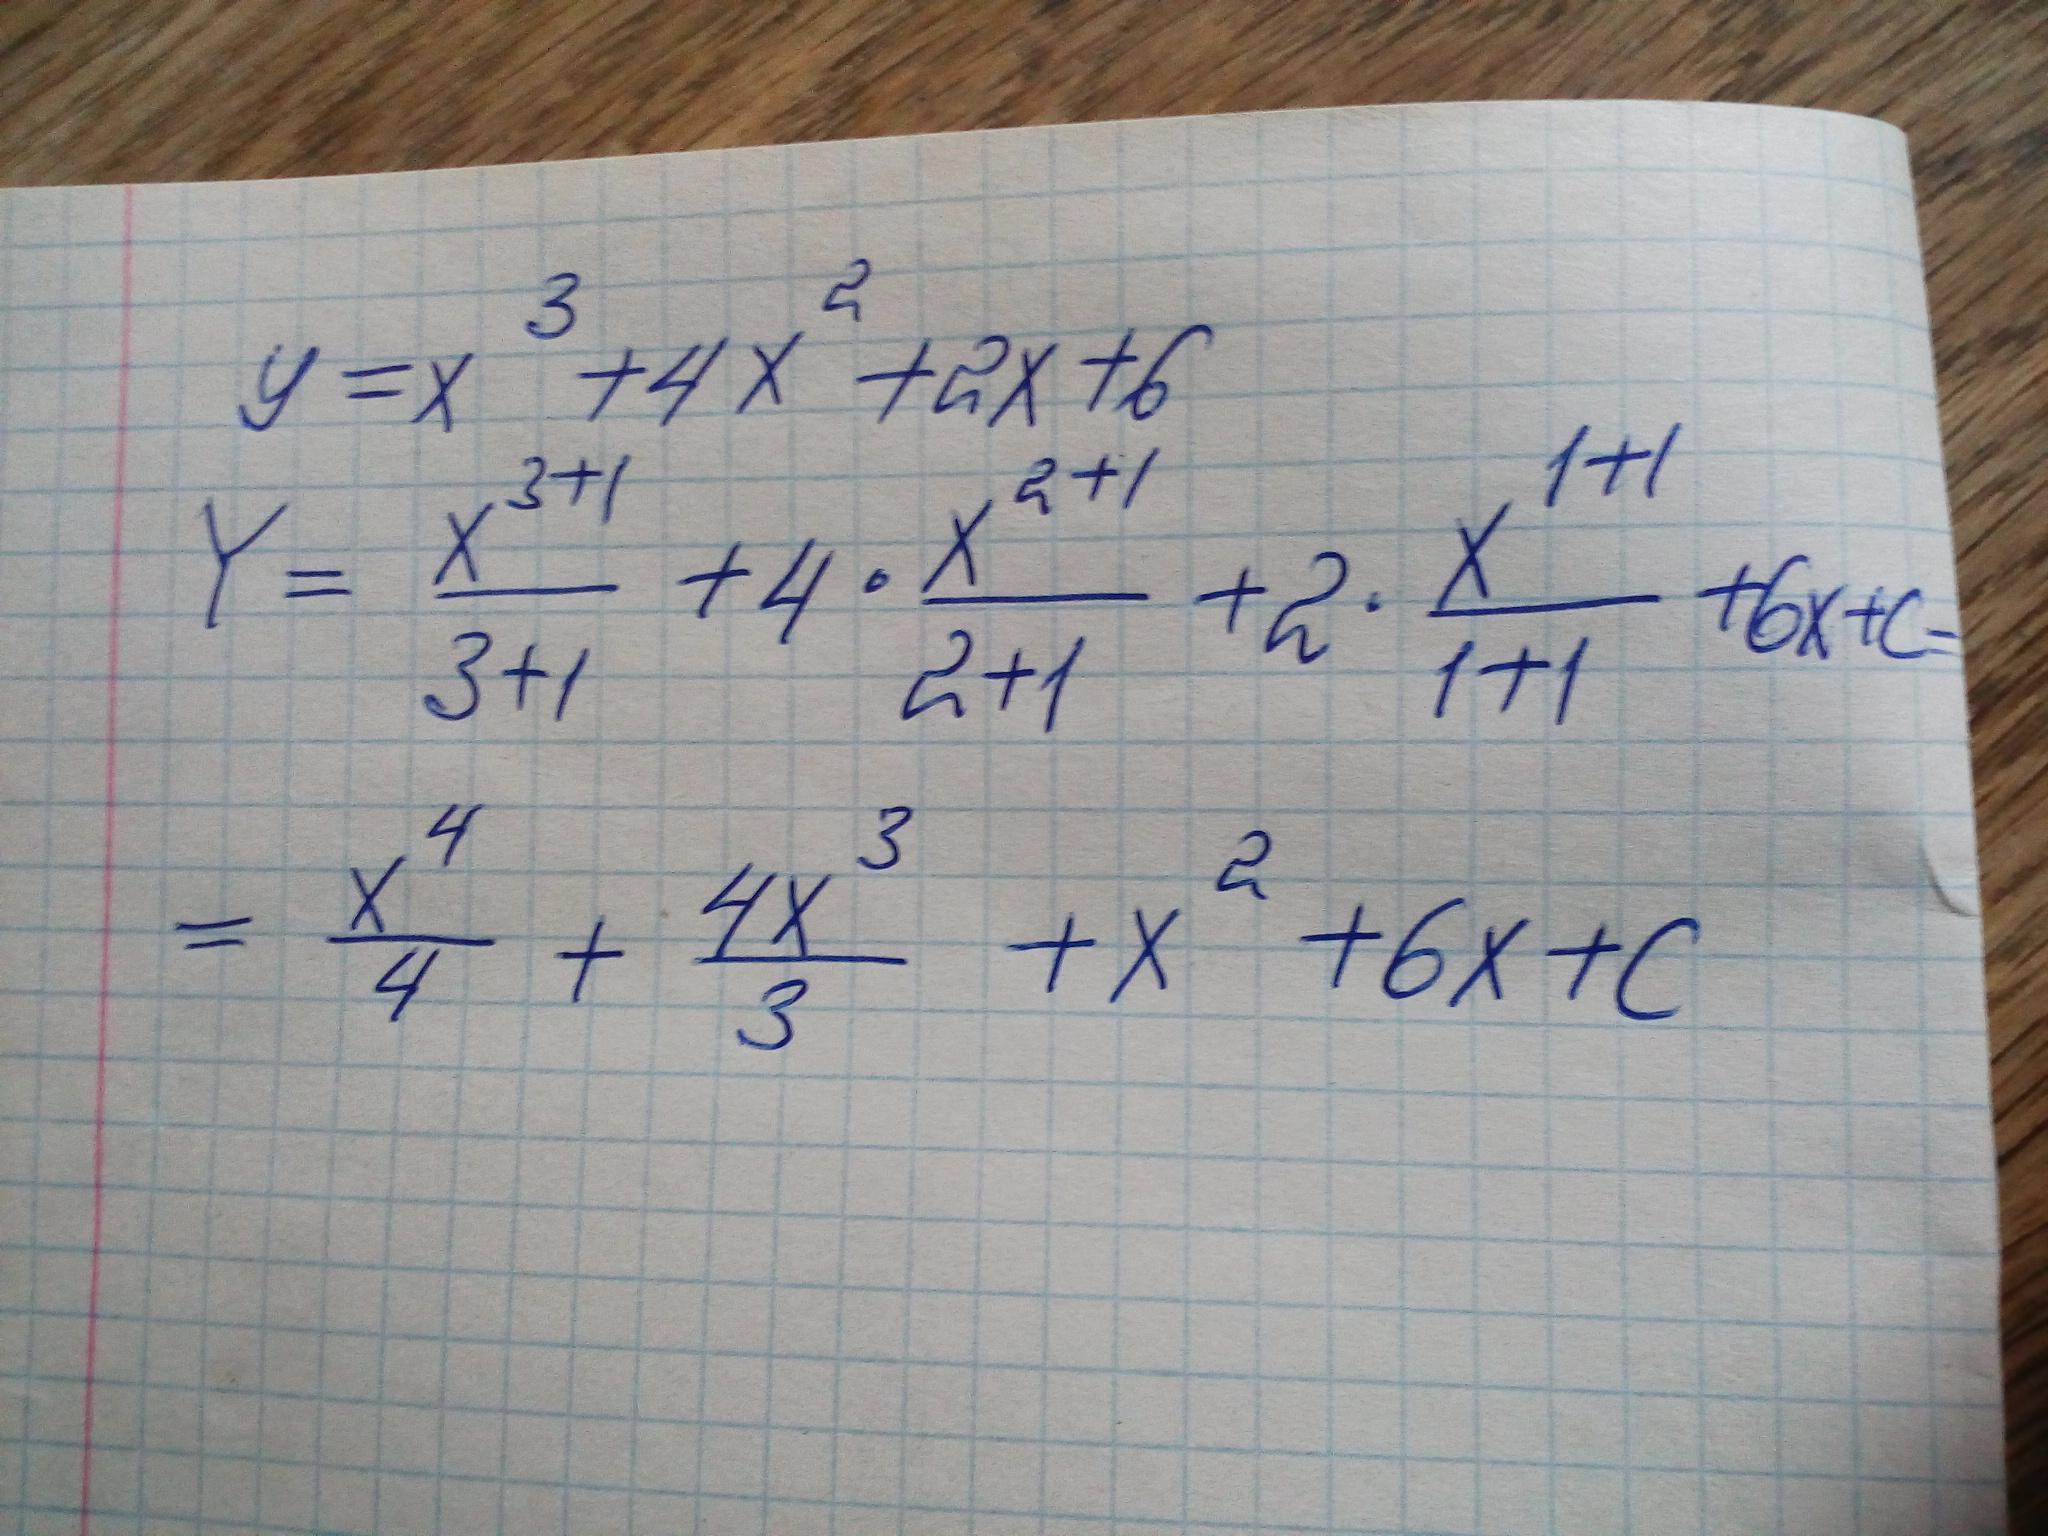 y = x³ + 4x² + 2x + 6
Y = x³⁺¹/(3+1) + 4 · x²⁺¹/(2+1) + 2 · x¹⁺¹/(1+1) + 6x + C =
= x⁴/4 + 4x³/3 + x² + 6x + C